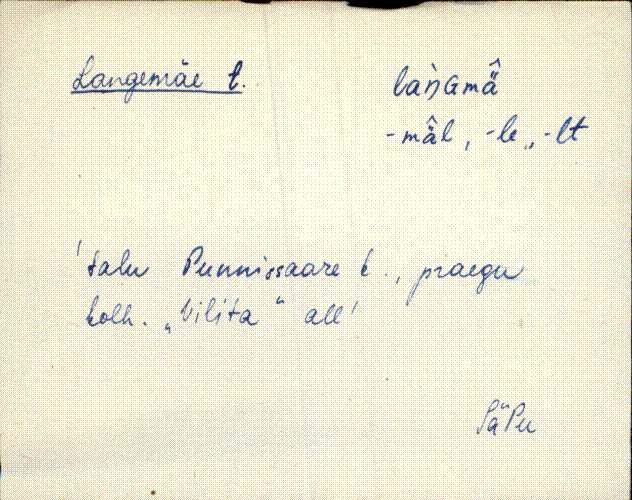 Langemäe t. làŋGmä̂
-mä̂l, -le, -lt
'talu Punnissaare k., praegu
kolh. „Vilita“ all'
SäPu